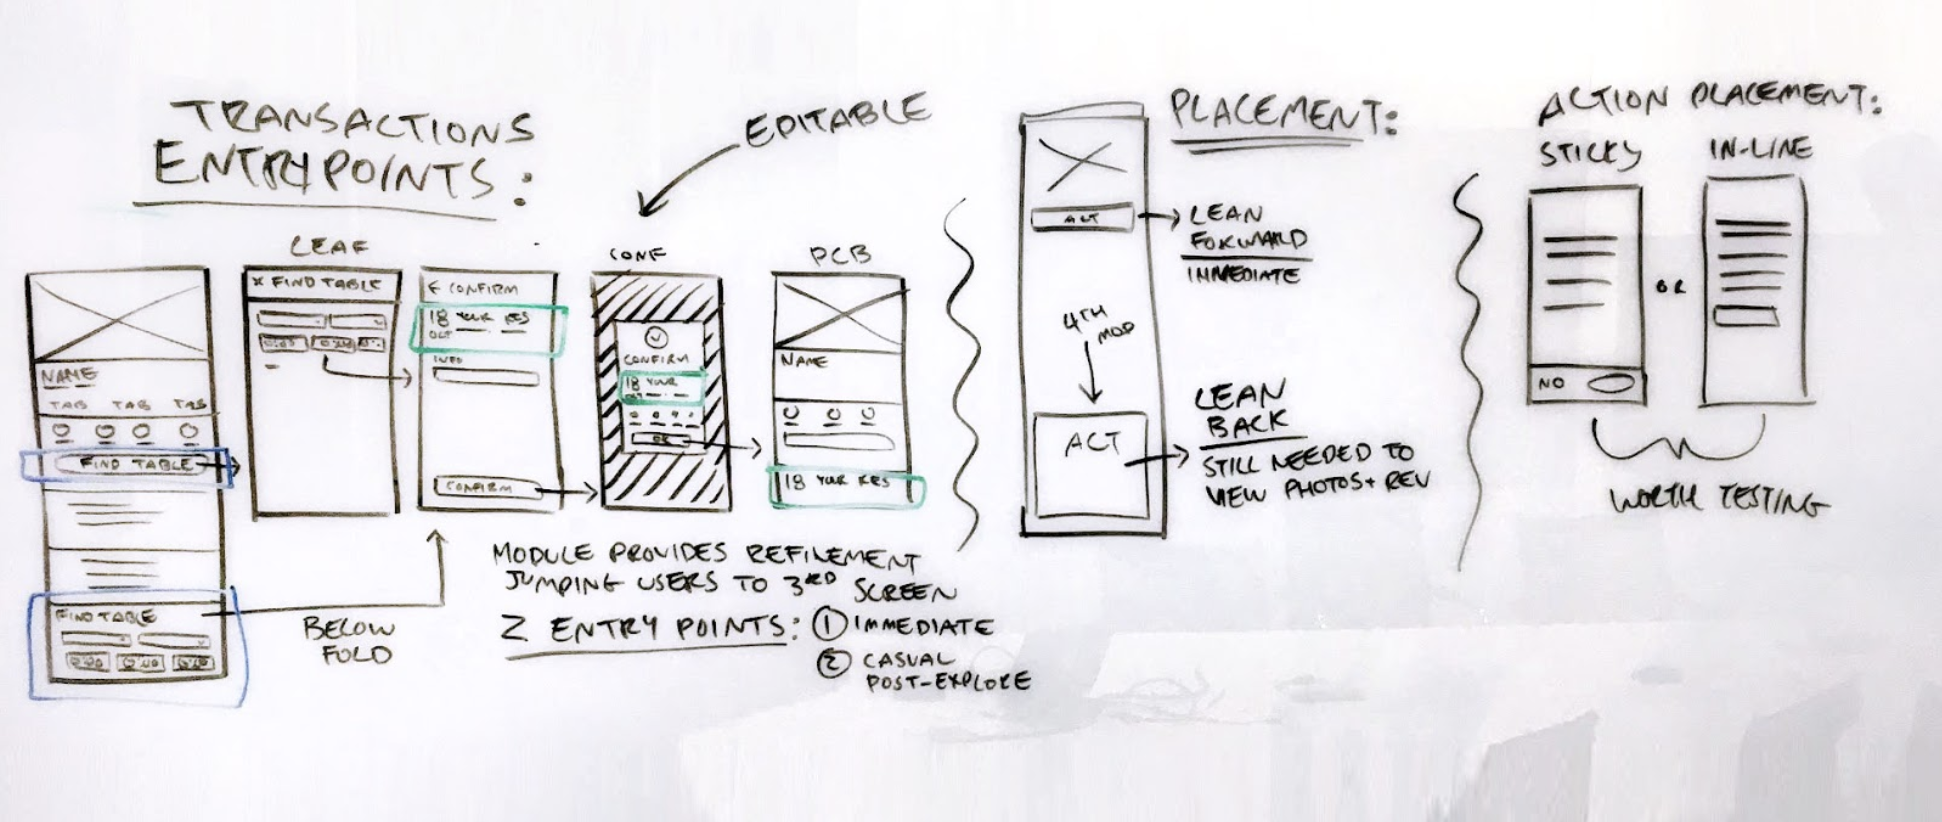 TRANSACTIONS
ENTRYPOINTS:
EDITABLE
LEAF
CONF
PCB
NAME
TAB TAB TAB
FIND TABLE
FIND TABLE
X FIND TABLE
← CONFIRM
18 YOUR RES
OCT
INFO
CONFIRM
CONFIRM
18 YOUR
OK
NAME
18 YOUR RES
BELOW
FOLD
MODULE PROVIDES REFINEMENT
JUMPING USERS TO 3RD SCREEN
2 ENTRY POINTS: 1 IMMEDIATE
2 CASUAL
POST-EXPLORE
PLACEMENT:
ACT
LEAN
FORWARD
IMMEDIATE
4TH
MOD
ACT
LEAN
BACK
STILL NEEDED TO
VIEW PHOTOS + REV
ACTION PLACEMENT:
STICKY
IN-LINE
OR
NO
WORTH TESTING